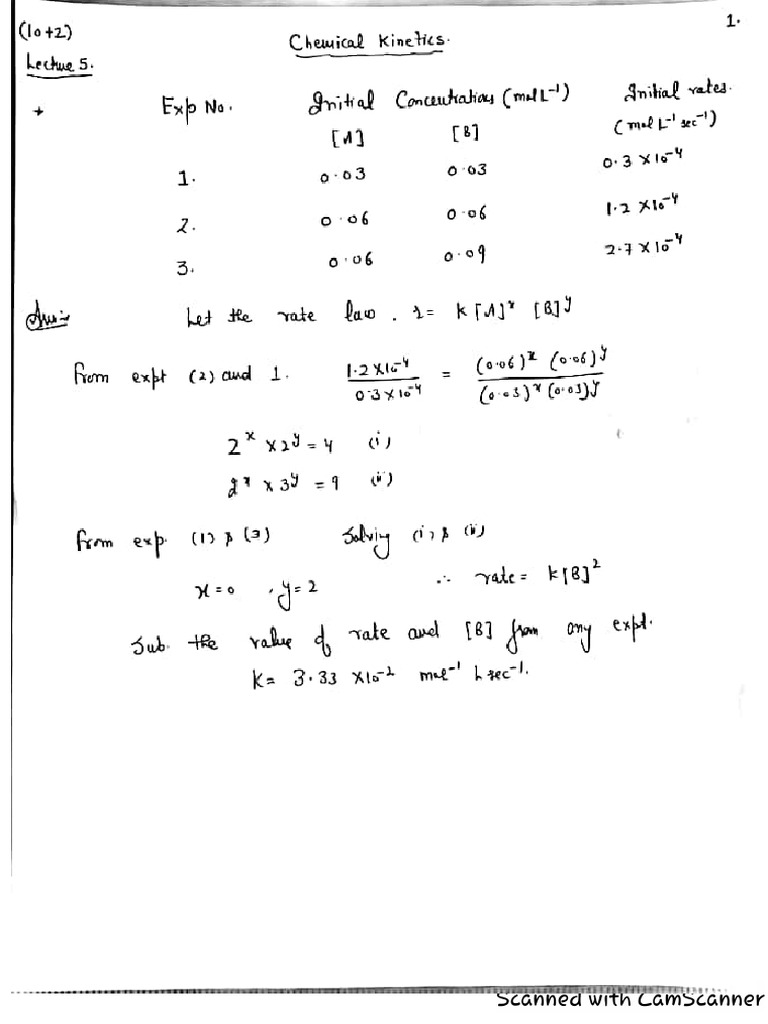 (10+2)
1.
Chemical Kinetics.
Lecture 5.
* Exp No. Initial Concentrations (mol L⁻¹) Initial rates.
[A] [B] (mol L⁻¹ sec⁻¹)
1. 0.03 0.03 0.3 × 10⁻⁴
2. 0.06 0.06 1.2 × 10⁻⁴
3. 0.06 0.09 2.7 × 10⁻⁴
Ans:- Let the rate law. r = K [A]ˣ [B]ʸ
From expt (2) and 1. 1.2 × 10⁻⁴ / 0.3 × 10⁻⁴ = (0.06)ˣ (0.06)ʸ / (0.03)ˣ (0.03)ʸ
2ˣ × 2ʸ = 4 (i)
2ˣ × 3ʸ = 9 (ii)
From exp. (1) & (3) Solving (i) & (ii)
x = 0 . y = 2 ∴ rate = K [B]²
Sub. the value of rate and [B] from any expt.
K = 3.33 × 10⁻² mol⁻¹ L sec⁻¹.
Scanned with CamScanner